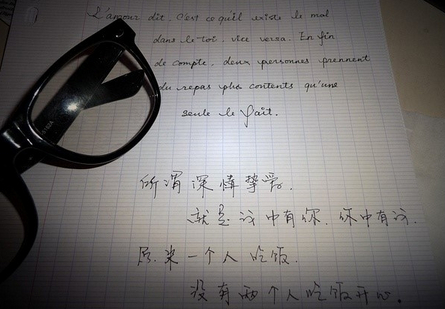 L'amour dit, C'est ce qu'il existe de moi
dans le toi, vice versa. En fin
de compte, deux personnes prennent
du repas plus contents qu'une
seule le fait.
所谓深情挚爱,
就是我中有你,你中有我.
原来一个人吃饭,
没有两个人吃饭开心。